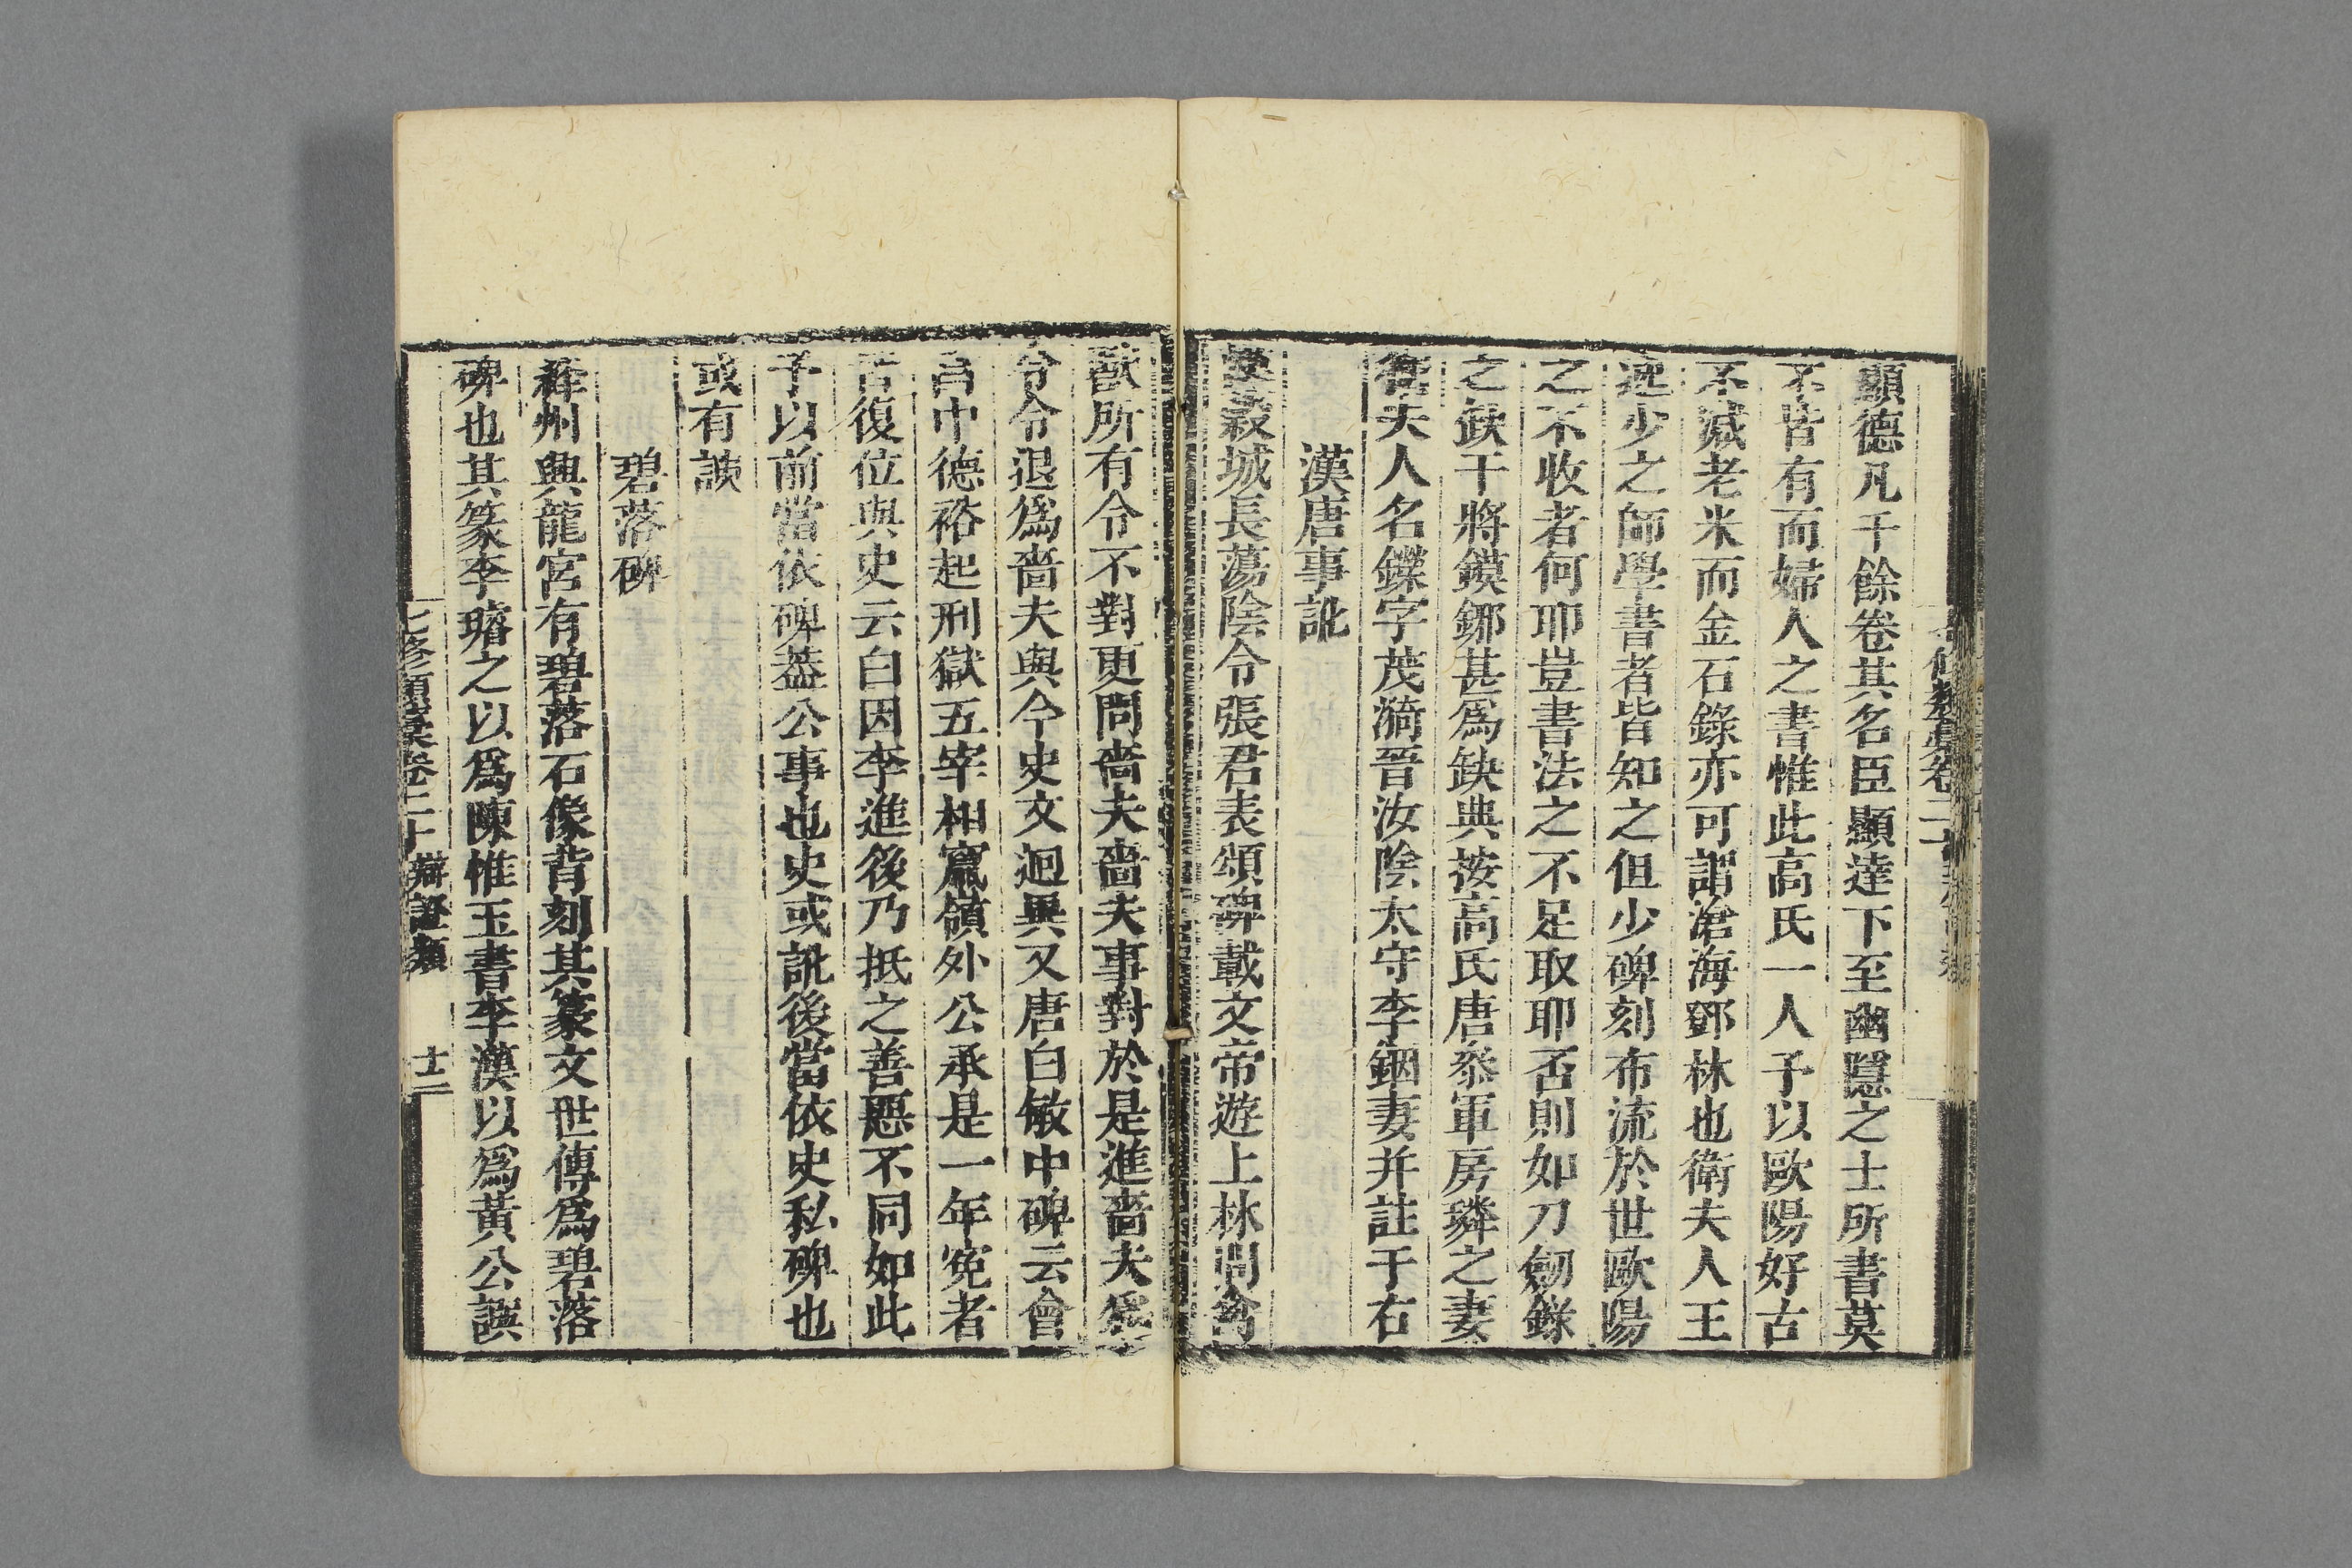 顯德凡千餘卷其名臣顯達下至幽隱之士所書莫
不皆有而婦人之書惟此高氏一人予以歐陽好古
不減老米而金石錄亦可謂滄海鄧林也衛夫人王
逸少之師學書者皆知之但少碑刻布流於世歐陽
之不收者何耶豈書法之不足取耶否則如刀劒錄
之缺干將鏌鋣甚爲缺典按高氏唐叅軍房璘之妻
衛夫人名鑠字茂漪晉汝陰太守李銦妻并註于右
漢唐事訛
穀城長蕩陰令張君表頌碑載文帝遊上林問禽
獸所有令不對更問嗇夫嗇夫事對於是進嗇夫爲
令令退爲嗇夫與今史文迥異又唐白敏中碑云會
昌中德裕起刑獄五宰相竄嶺外公承是一年寃者
皆復位與史云白因李進後乃抵之善惡不同如此
予以前當依碑葢公事也史或訛後當依史私碑也
或有諛
碧落碑
絳州興龍宮有碧落石像背刻其篆文世傳爲碧落
碑也其篆李璿之以爲陳惟玉書李漢以爲黃公譔
七修類藁卷二十 辯證類 十二